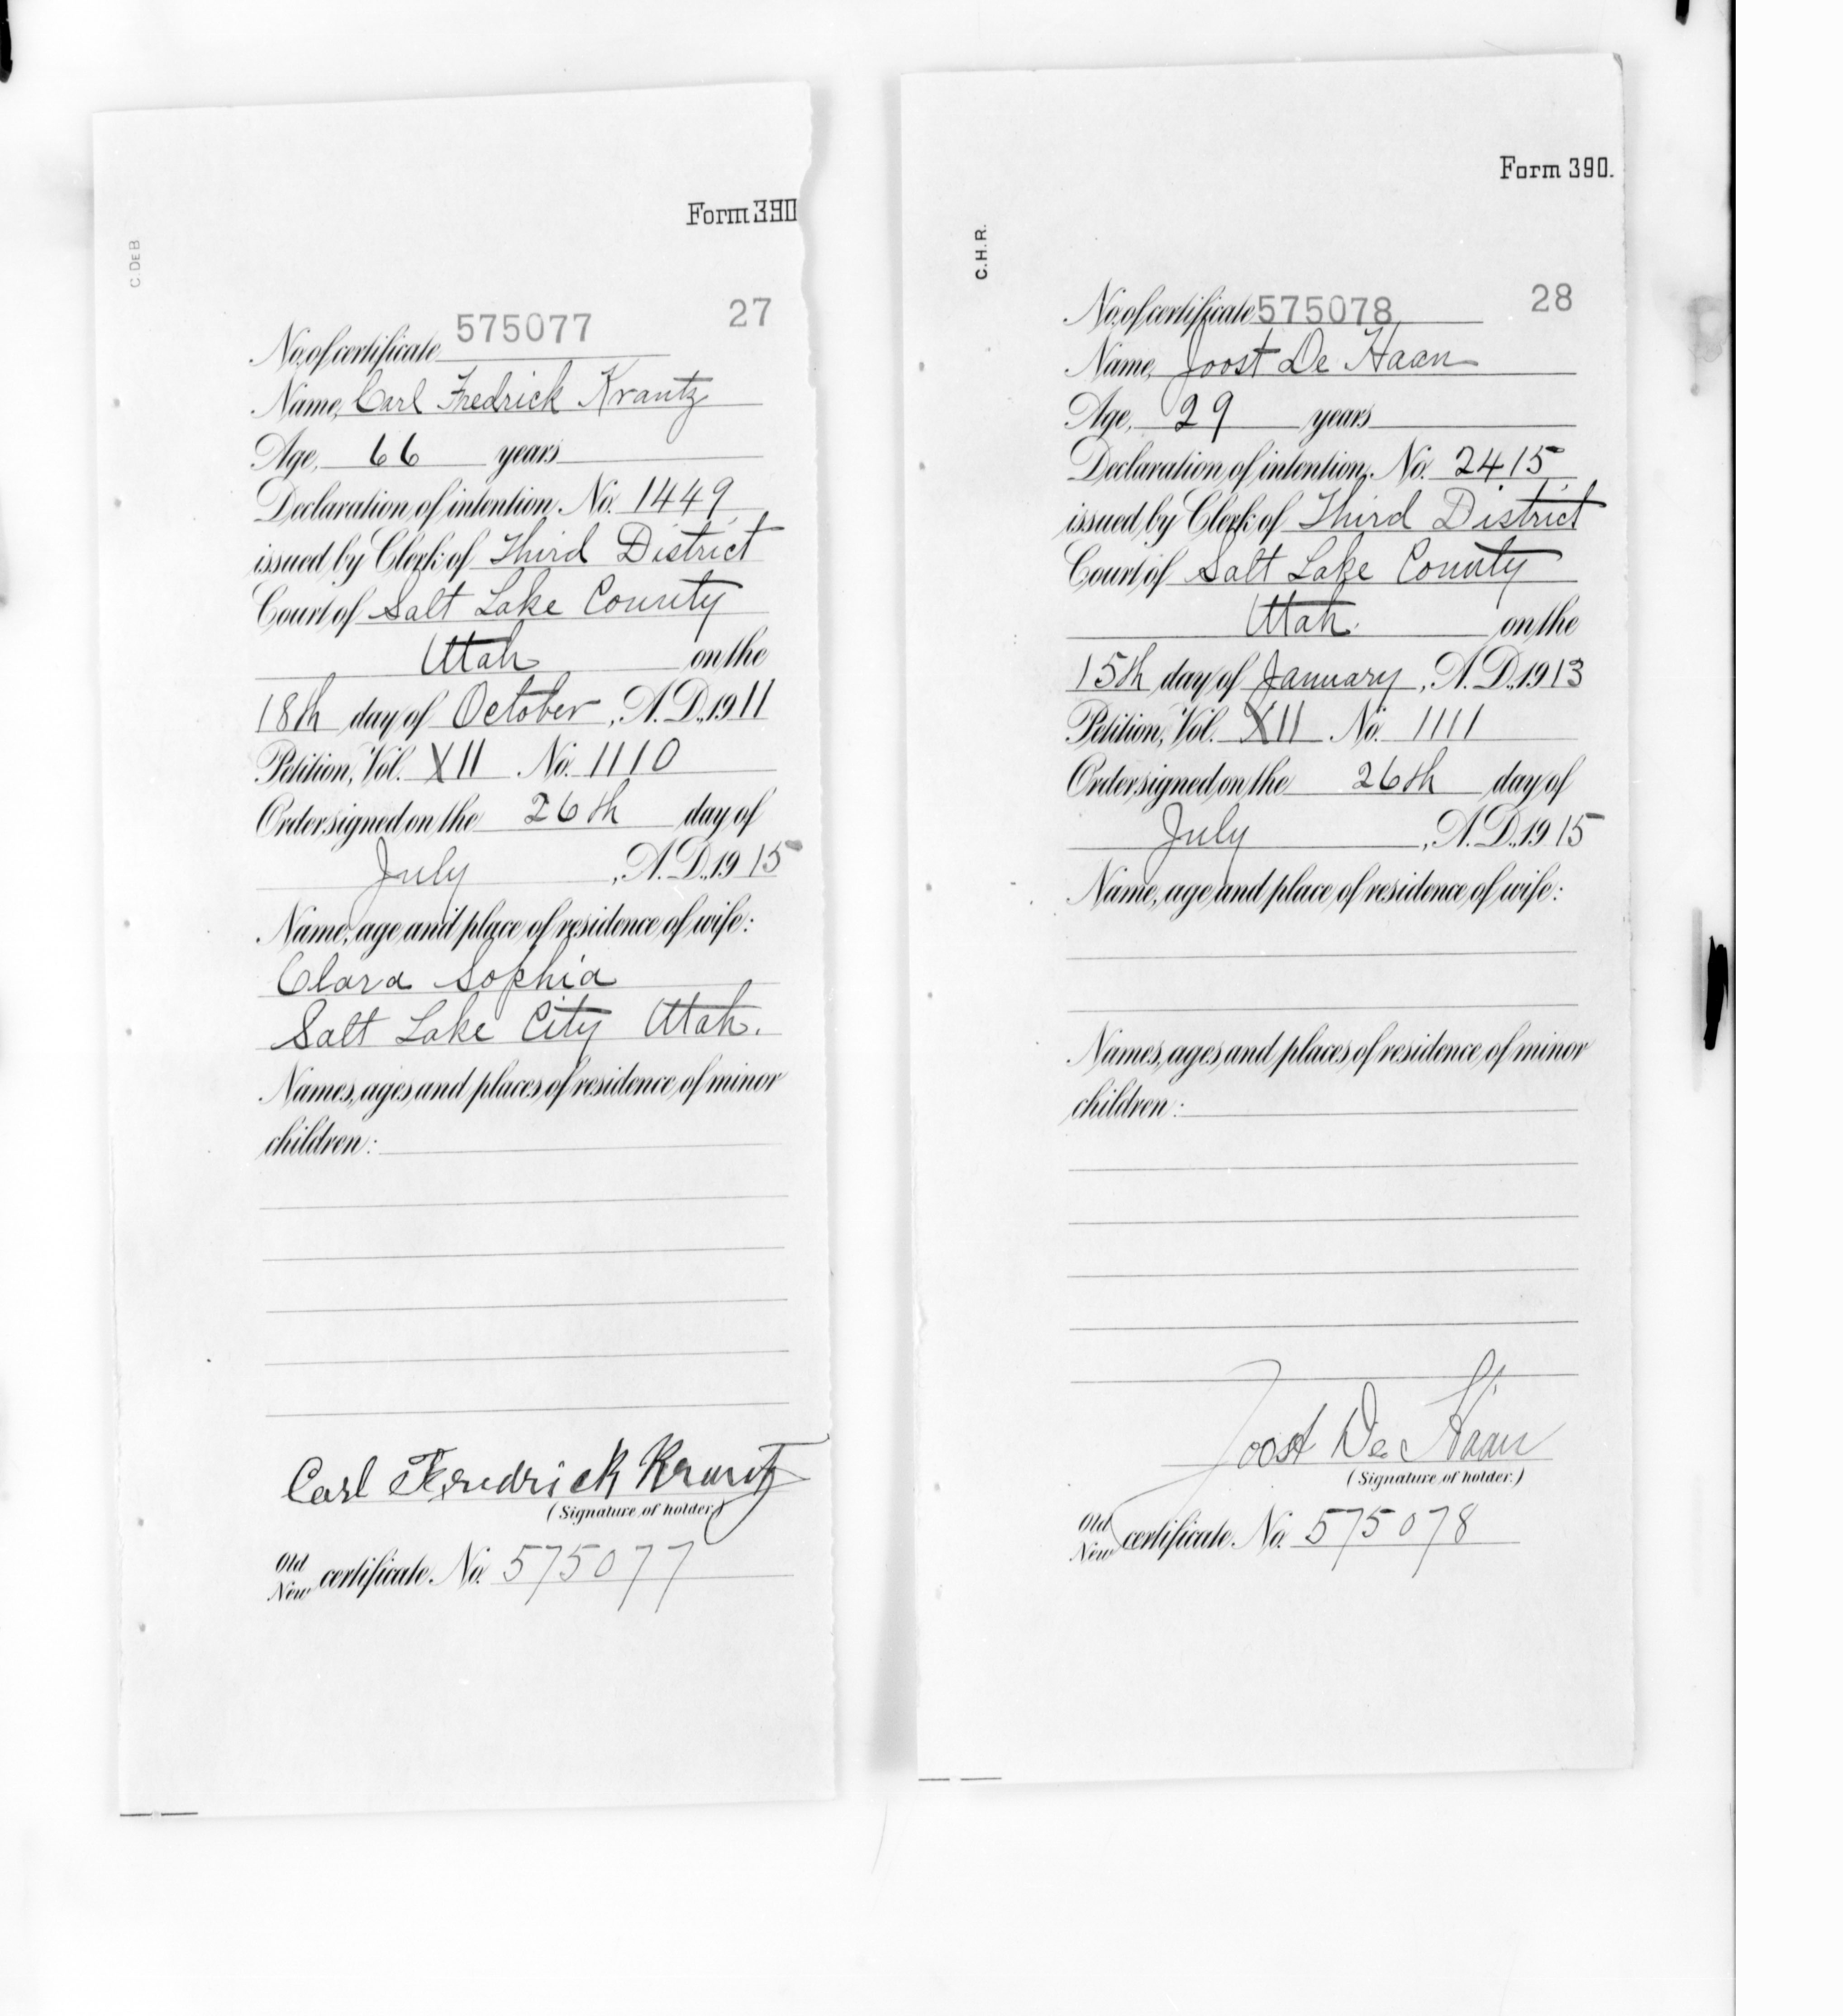 Form 390
C. DE B
27
No. of certificate 575077
Name, Carl Fredrick Krantz
Age, 66 years
Declaration of intention, No. 1449,
issued by Clerk of Third District
Court of Salt Lake County
Utah on the
18th day of October, A. D., 1911
Petition, Vol. XII No. 1110
Order signed on the 26th day of
July, A. D., 1915
Name, age and place of residence of wife:
Clara Sophia
Salt Lake City Utah.
Names, ages and places of residence of minor
children:
Carl Fredrick Krantz
(Signature of holder.)
Old
New certificate. No. 575077
Form 390.
C. H. R.
28
No. of certificate 575078
Name, Joost De Haan
Age, 29 years
Declaration of intention, No. 2415,
issued by Clerk of Third District
Court of Salt Lake County
Utah. on the
15th day of January, A. D., 1913
Petition, Vol. XII No. 1111
Order signed on the 26th day of
July, A. D., 1915
Name, age and place of residence of wife:
Names, ages and places of residence of minor
children:
Joost De Haan
(Signature of holder.)
Old
New certificate. No. 575078